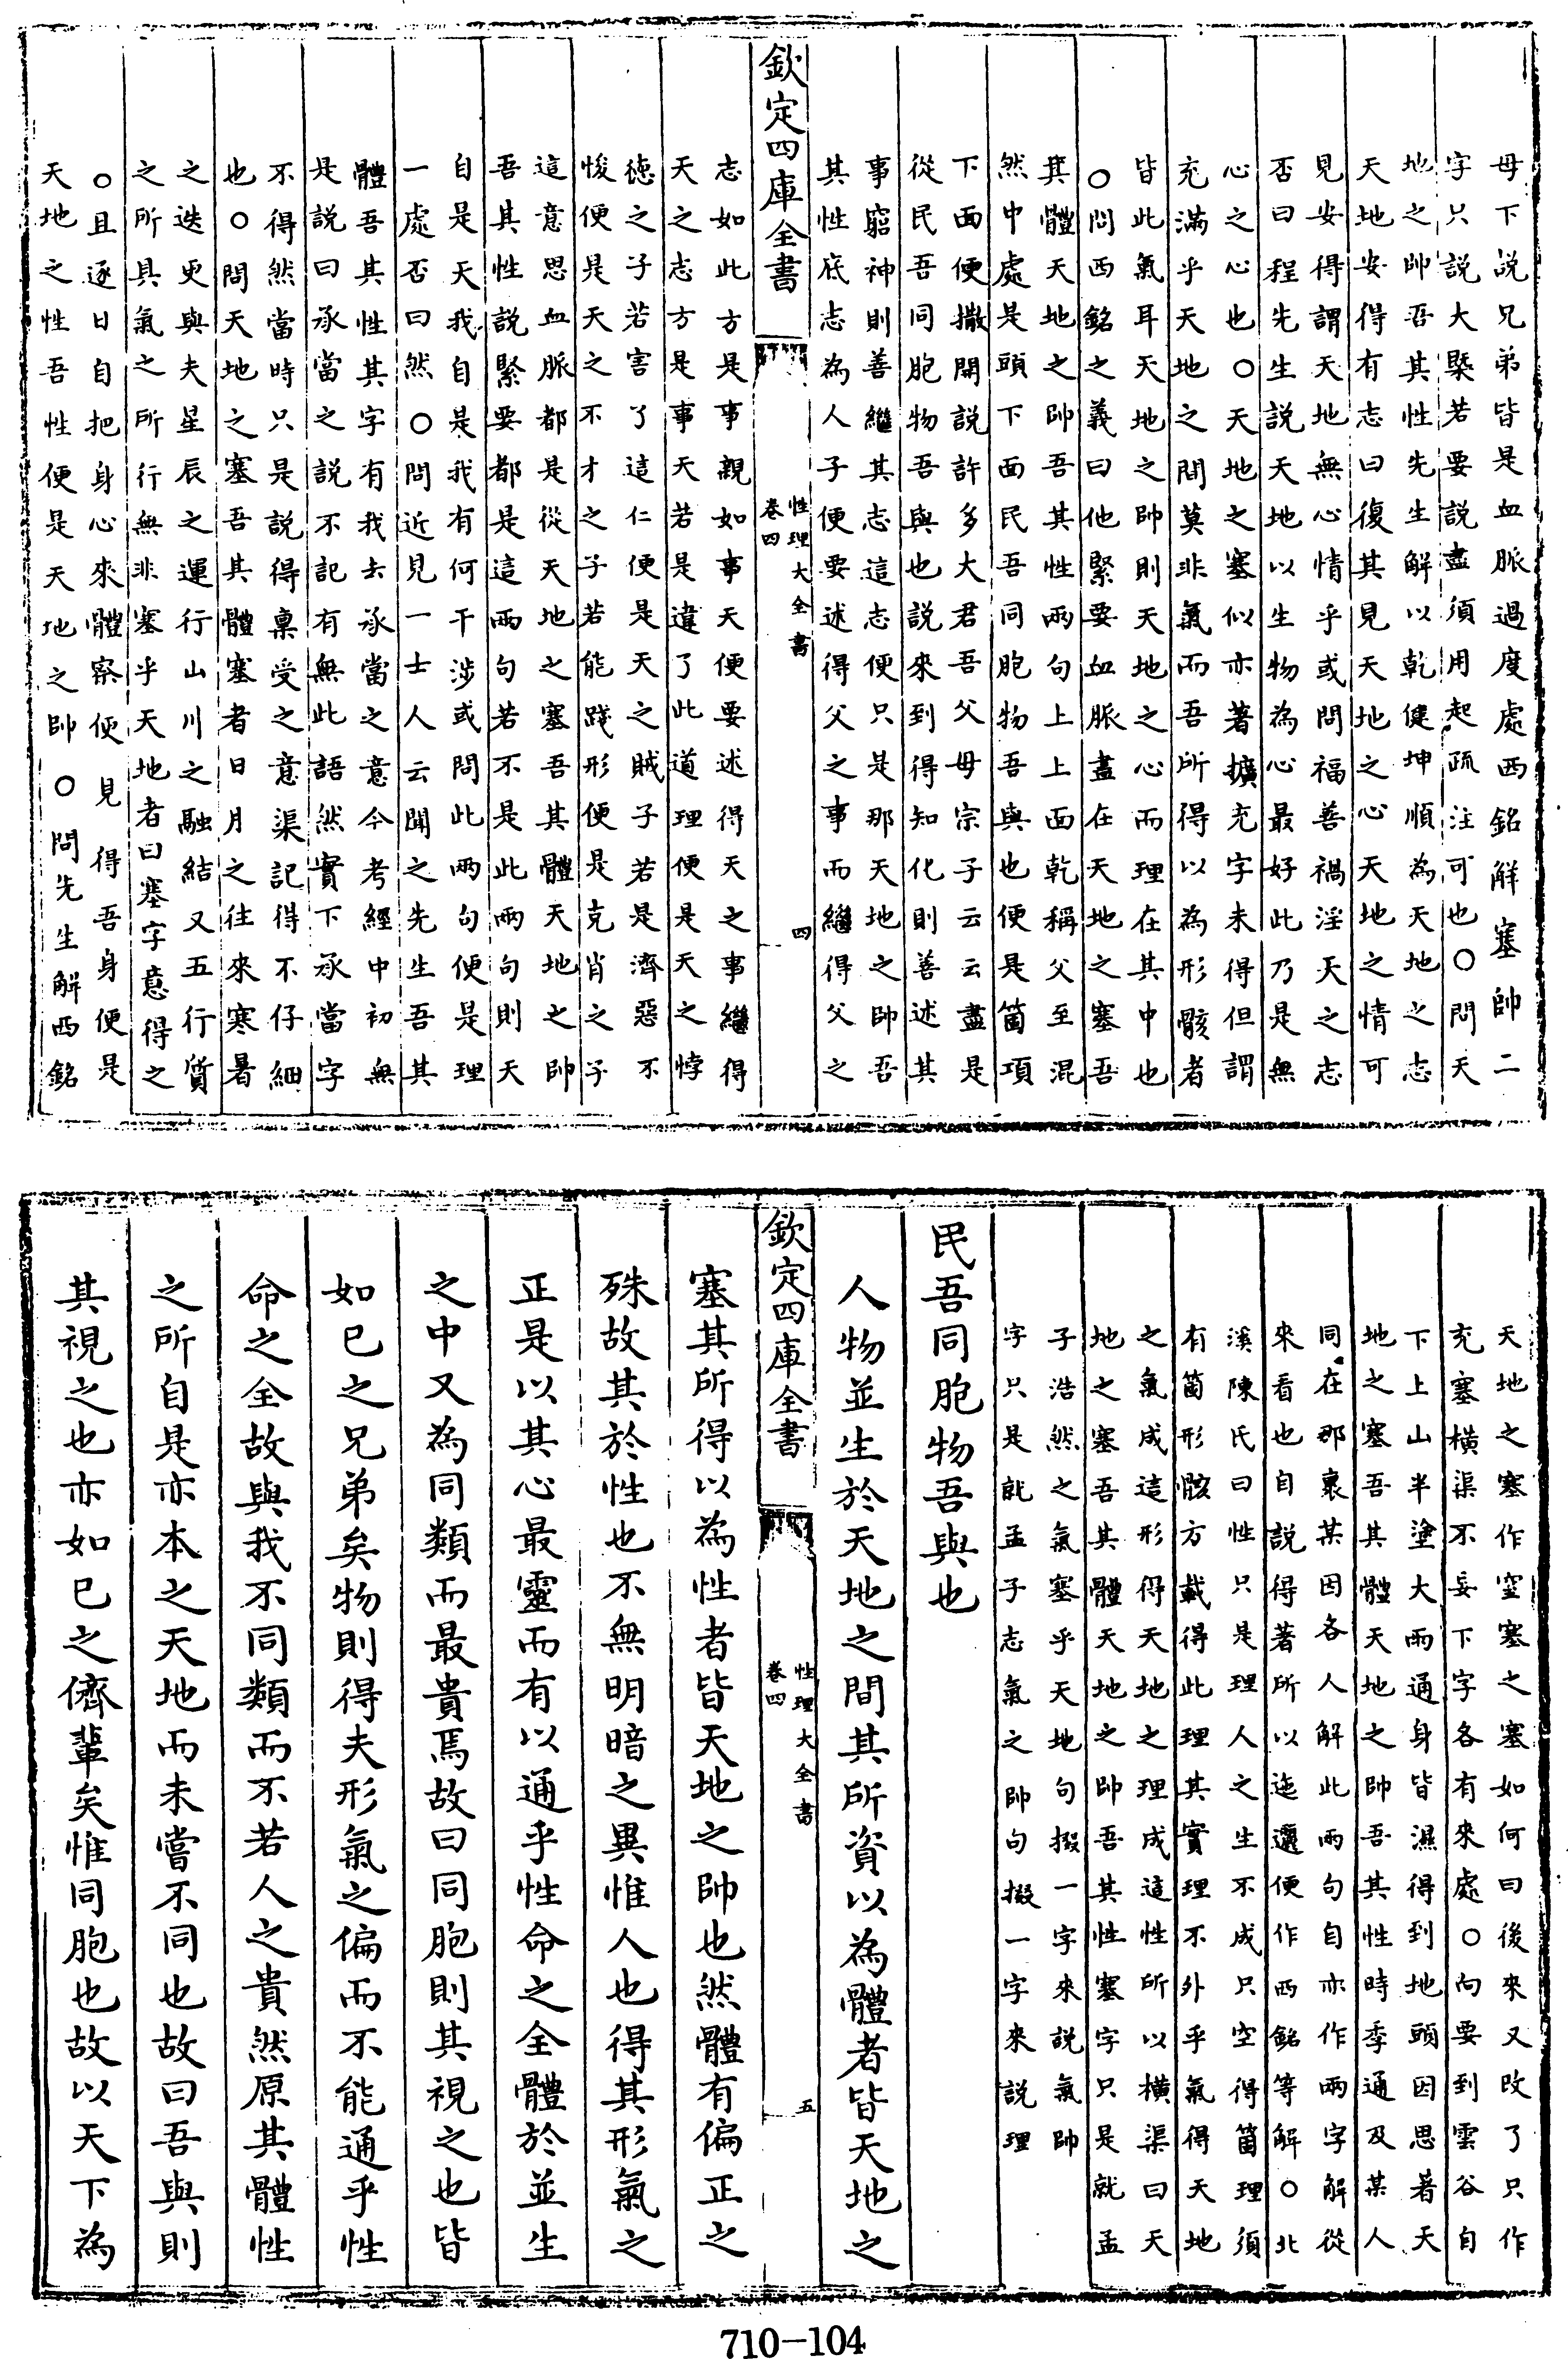 母下說兄弟皆是血脈過度處西銘解塞帥二
字只說大槩若要說盡須用起疏注可也○問天
地之帥吾其性先生解以乾健坤順為天地之志
天地安得有志曰復其見天地之心天地之情可
見安得謂天地無心情乎或問福善禍淫天之志
否曰程先生說天地以生物為心最好此乃是無
心之心也○天地之塞似亦著擴充字未得但謂
充滿乎天地之間莫非氣而吾所得以為形骸者
皆此氣耳天地之帥則天地之心而理在其中也
○問西銘之義曰他緊要血脈盡在天地之塞吾
其體天地之帥吾其性兩句上上面乾稱父至混
然中處是頭下面民吾同胞物吾與也便是箇項
下面便撒開說許多大君吾父母宗子云云盡是
從民吾同胞物吾與也說來到得知化則善述其
事窮神則善繼其志這志便只是那天地之帥吾
其性底志為人子便要述得父之事而繼得父之
欽定四庫全書
性理大全書
卷四
四
志如此方是事親如事天便要述得天之事繼得
天之志方是事天若是違了此道理便是天之悖
德之子若害了這仁便是天之賊子若是濟惡不
悛便是天之不才之子若能踐形便是克肖之子
這意思血脈都是從天地之塞吾其體天地之帥
吾其性說緊要都是這兩句若不是此兩句則天
自是天我自是我有何干涉或問此兩句便是理
一處否曰然○問近見一士人云聞之先生吾其
體吾其性其字有我去承當之意今考經中初無
是說曰承當之說不記有無此語然實下承當字
不得然當時只是說得稟受之意渠記得不仔細
也○問天地之塞吾其體塞者日月之往來寒暑
之迭更與夫星辰之運行山川之融結又五行質
之所具氣之所行無非塞乎天地者曰塞字意得之
○且逐日自把身心來體察便見得吾身便是
天地之性吾性便是天地之帥○問先生解西銘
天地之塞作窒塞之塞如何曰後來又改了只作
充塞橫渠不妄下字各有來處○向要到雲谷自
下上山半塗大雨通身皆濕得到地頭因思著天
地之塞吾其體天地之帥吾其性時季通及某人
同在那裏某因各人解此兩句自亦作兩字解從
來看也自說得著所以迤邐便作西銘等解○北
溪陳氏曰性只是理人之生不成只空得箇理須
有箇形骸方載得此理其實理不外乎氣得天地
之氣成這形得天地之理成這性所以橫渠曰天
地之塞吾其體天地之帥吾其性塞字只是就孟
子浩然之氣塞乎天地句掇一字來說氣帥
字只是就孟子志氣之帥句掇一字來說理
民吾同胞物吾與也
人物並生於天地之間其所資以為體者皆天地之
欽定四庫全書
性理大全書
卷四
五
塞其所得以為性者皆天地之帥也然體有偏正之
殊故其於性也不無明暗之異惟人也得其形氣之
正是以其心最靈而有以通乎性命之全體於並生
之中又為同類而最貴焉故曰同胞則其視之也皆
如已之兄弟矣物則得夫形氣之偏而不能通乎性
命之全故與我不同類而不若人之貴然原其體性
之所自是亦本之天地而未嘗不同也故曰吾與則
其視之也亦如已之儕輩矣惟同胞也故以天下為
710-104